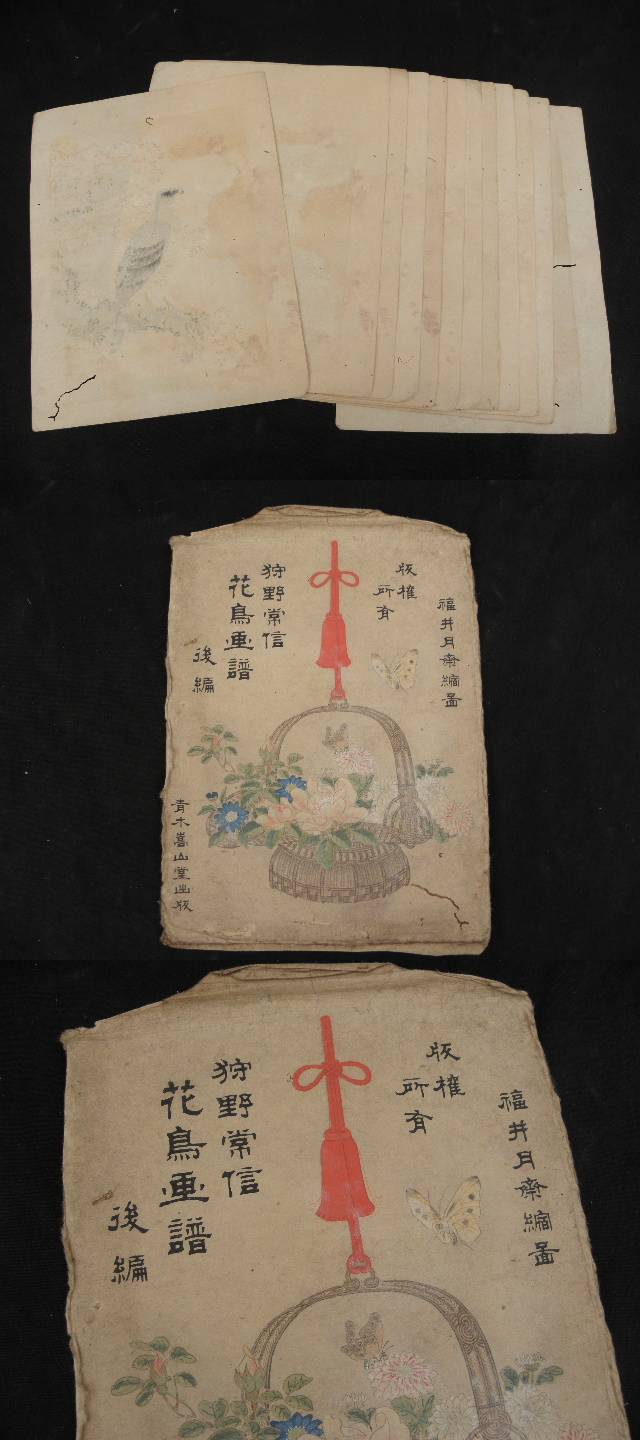 福井月斎縮圖
版権
所有
狩野常信
花鳥画譜
後編
青木嵩山堂出版
福井月斎縮圖
版権
所有
狩野常信
花鳥画譜
後編